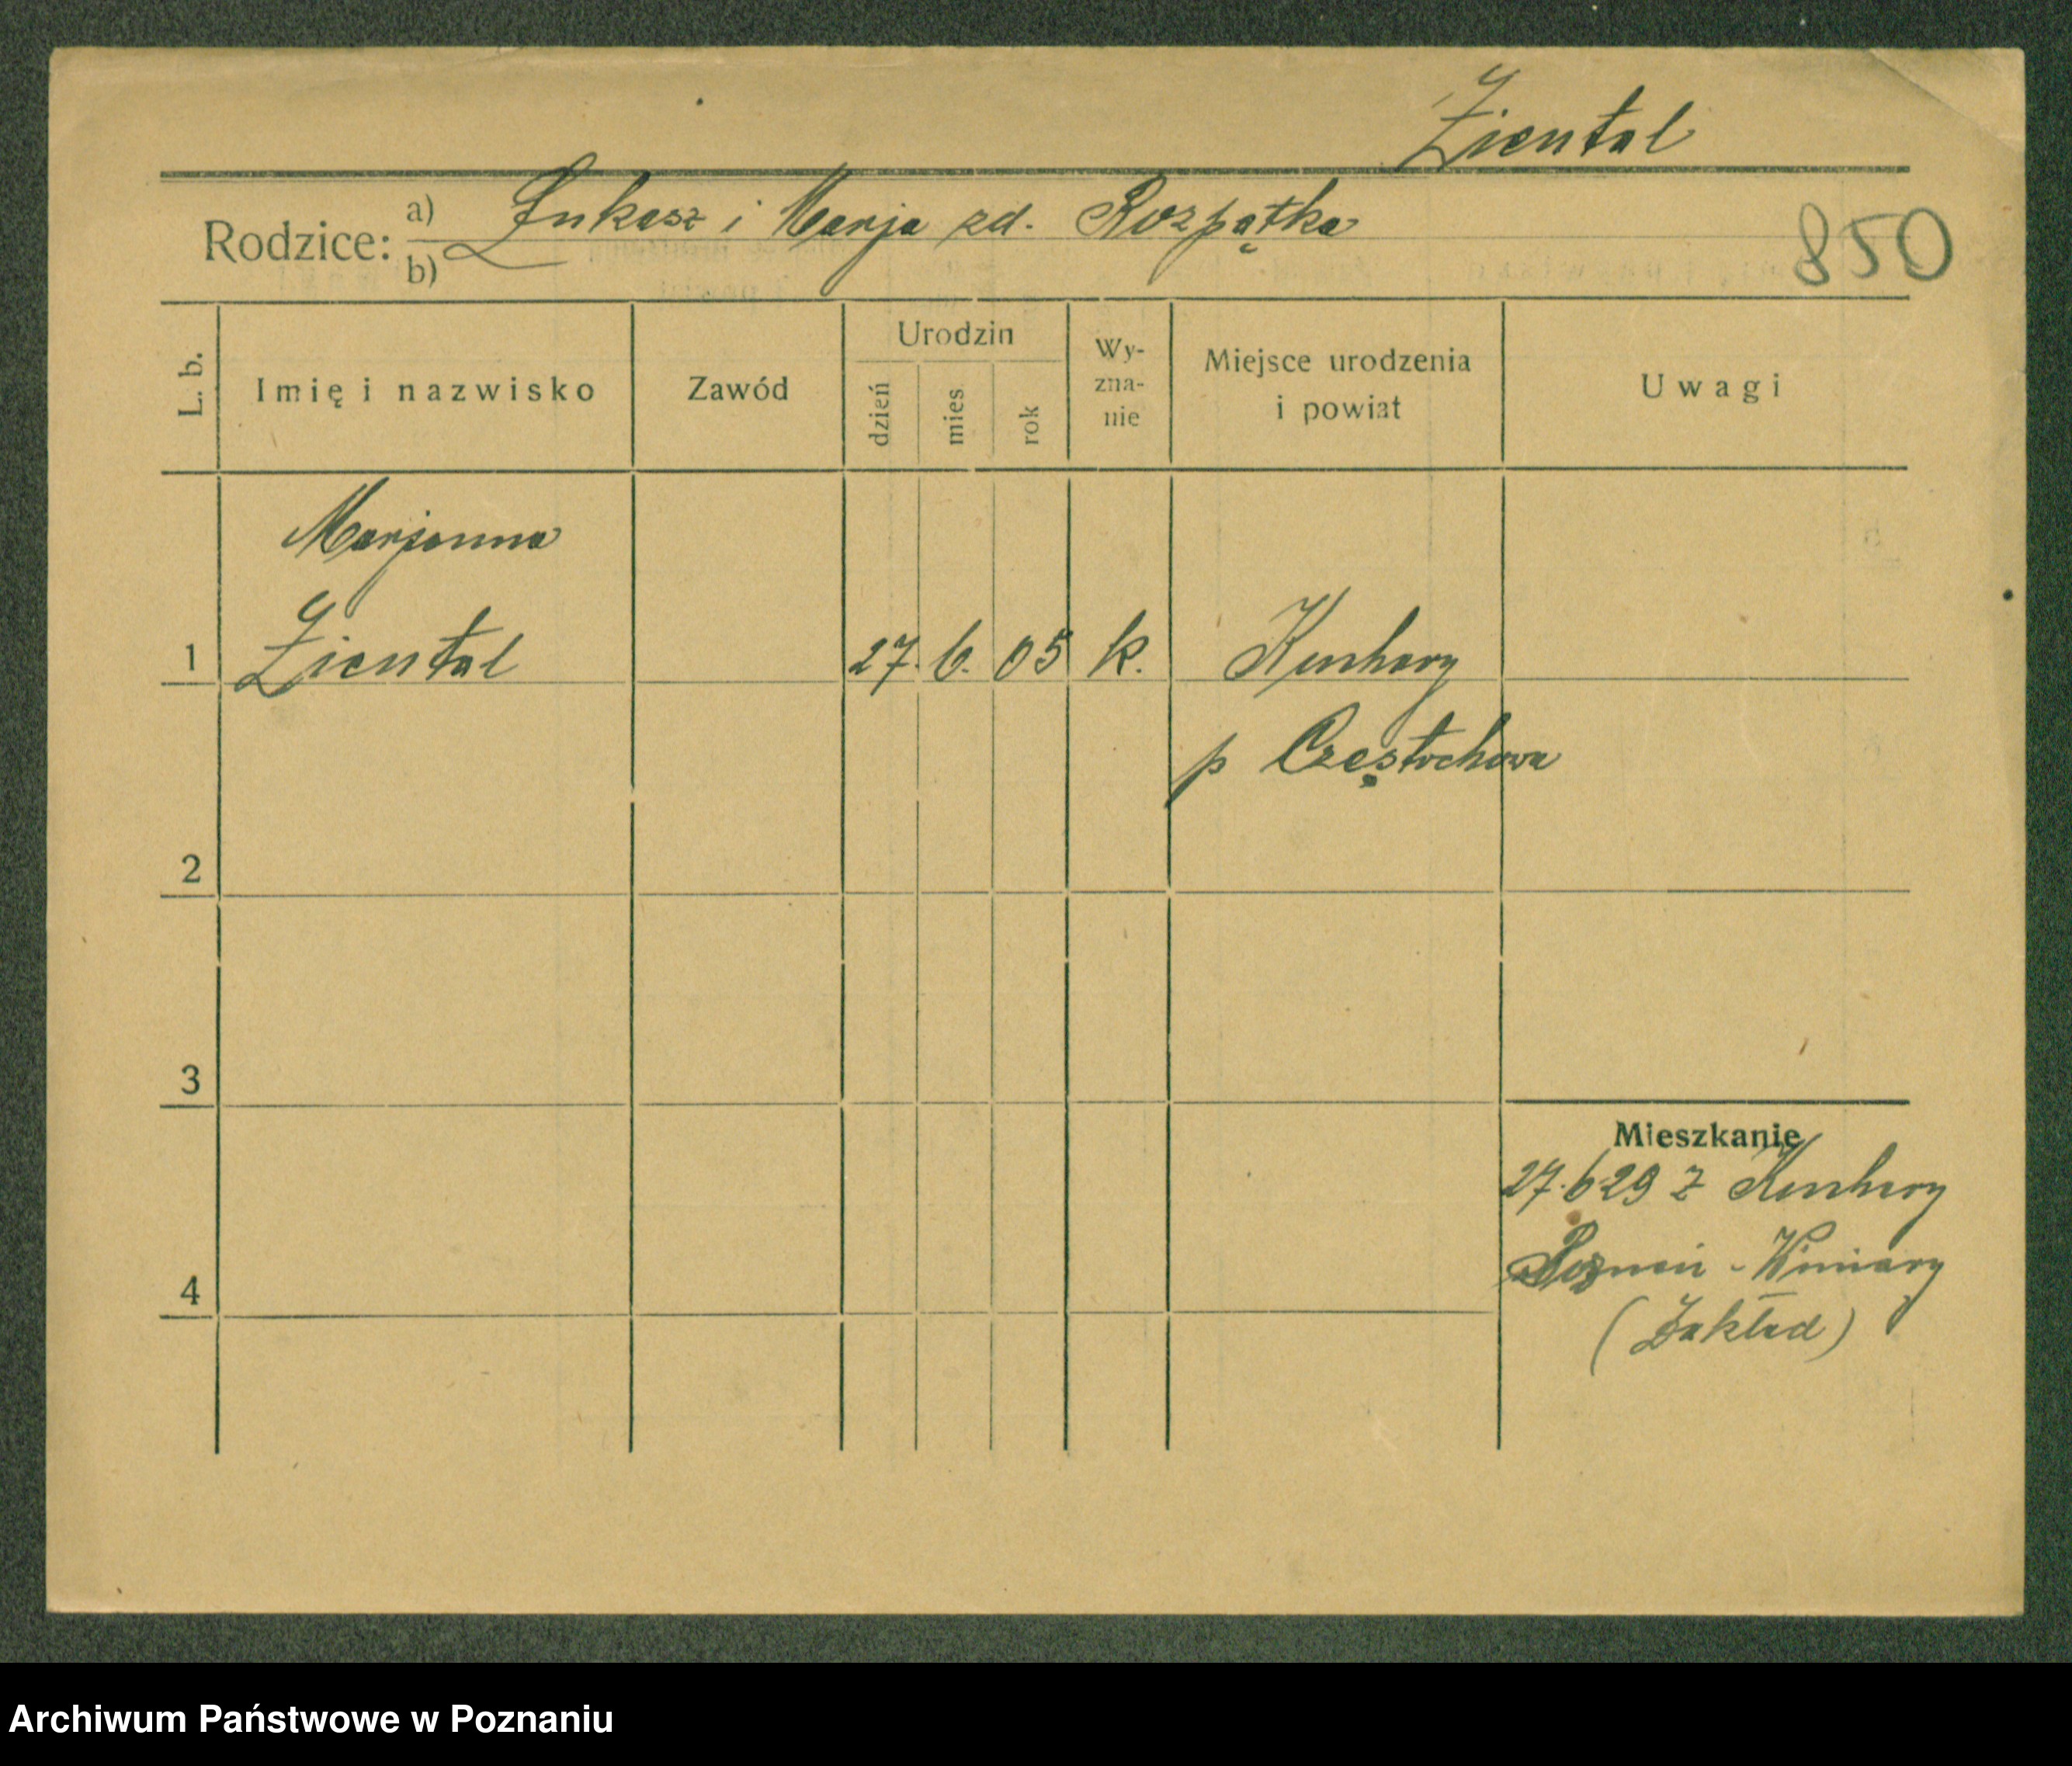 Ziental
Rodzice: a) Łukasz i Marja zd. Rozpątka
b)
850
L. b.
Imię i nazwisko
Zawód
Urodzin
dzień
mies
rok
Wy-
zna-
nie
Miejsce urodzenia
i powiat
Uwagi
Marjanna
1 Ziental 27. 6. 05 k. Kuchary
p Częstochowa
2
3
Mieszkanie
27.6 29 z Kuchary
Poznań - Winiary
4
(Zakład)
Archiwum Państwowe w Poznaniu